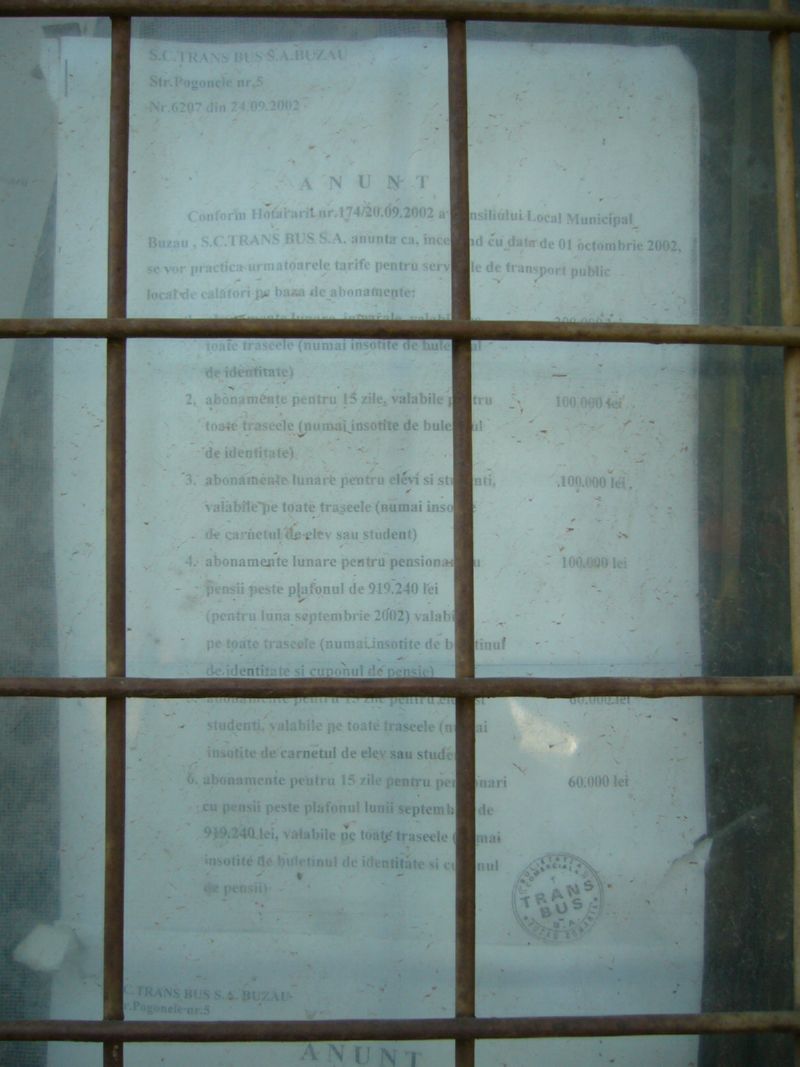 S.C.TRANS BUS S.A.BUZAU
Str.Pogonele nr.5
Nr.6207 din 24.09.2002
A N U N T
Conform Hotararii nr.174/20.09.2002 a nsiliului Local Municipal
Buzau , S.C.TRANS BUS S.A. anunta ca, ince nd cu data de 01 octombrie 2002,
se vor practica urmatoarele tarife pentru serv le de transport public
local de calatori pe baza de abonamente:
abonamente lunare
toate traseele (numai insotite de bule ul
de identitate)
2. abonamente pentru 15 zile, valabile p tru 100.000 lei
toate traseele (numai insotite de bule ul
de identitate)
3. abonamente lunare pentru elevi si stu nti, 100.000 lei
valabile pe toate traseele (numai inso e
de carnetul de elev sau student)
4. abonamente lunare pentru pensiona u 100.000 lei
pensii peste plafonul de 919.240 lei
(pentru luna septembrie 2002) valabi
pe toate traseele (numai insotite de b tinul
de identitate si cuponul de pensie)
abonamente pentru 15 zile pentru elevi si 60.000 lei
studenti, valabile pe toate traseele (n ai
insotite de carnetul de elev sau stude
6. abonamente pentru 15 zile pentru pe onari 60.000 lei
cu pensii peste plafonul lunii septemb de
919.240 lei, valabile pe toate traseele ( mai
insotite de buletinul de identitate si cu nul
de pensii)
TRANS
BUS
S.A.
C.TRANS BUS S.A. BUZAU
r.Pogonele nr.5
A N U N T